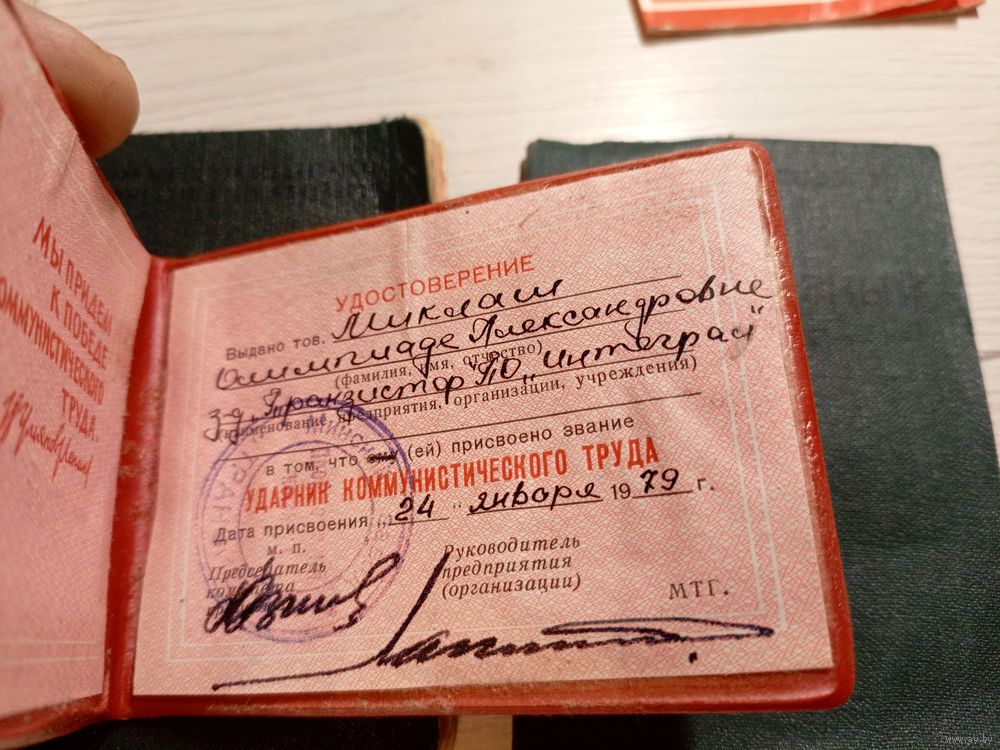 МЫ ПРИДЕМ
К ПОБЕДЕ
КОММУНИСТИЧЕСКОГО
ТРУДА.
УДОСТОВЕРЕНИЕ
Выдано тов. Миклаш
Олимпиаде Александровне
(фамилия, имя, отчество)
з-д „Транзистор" ПО „Интеграл"
(наименование предприятия, организации, учреждения)
в том, что ему (ей) присвоено звание
УДАРНИК КОММУНИСТИЧЕСКОГО ТРУДА
Дата присвоения „24" января 1979 г.
м. п.
Председатель
комитета
Руководитель
предприятия
(организации)
МТГ.
www.av.by